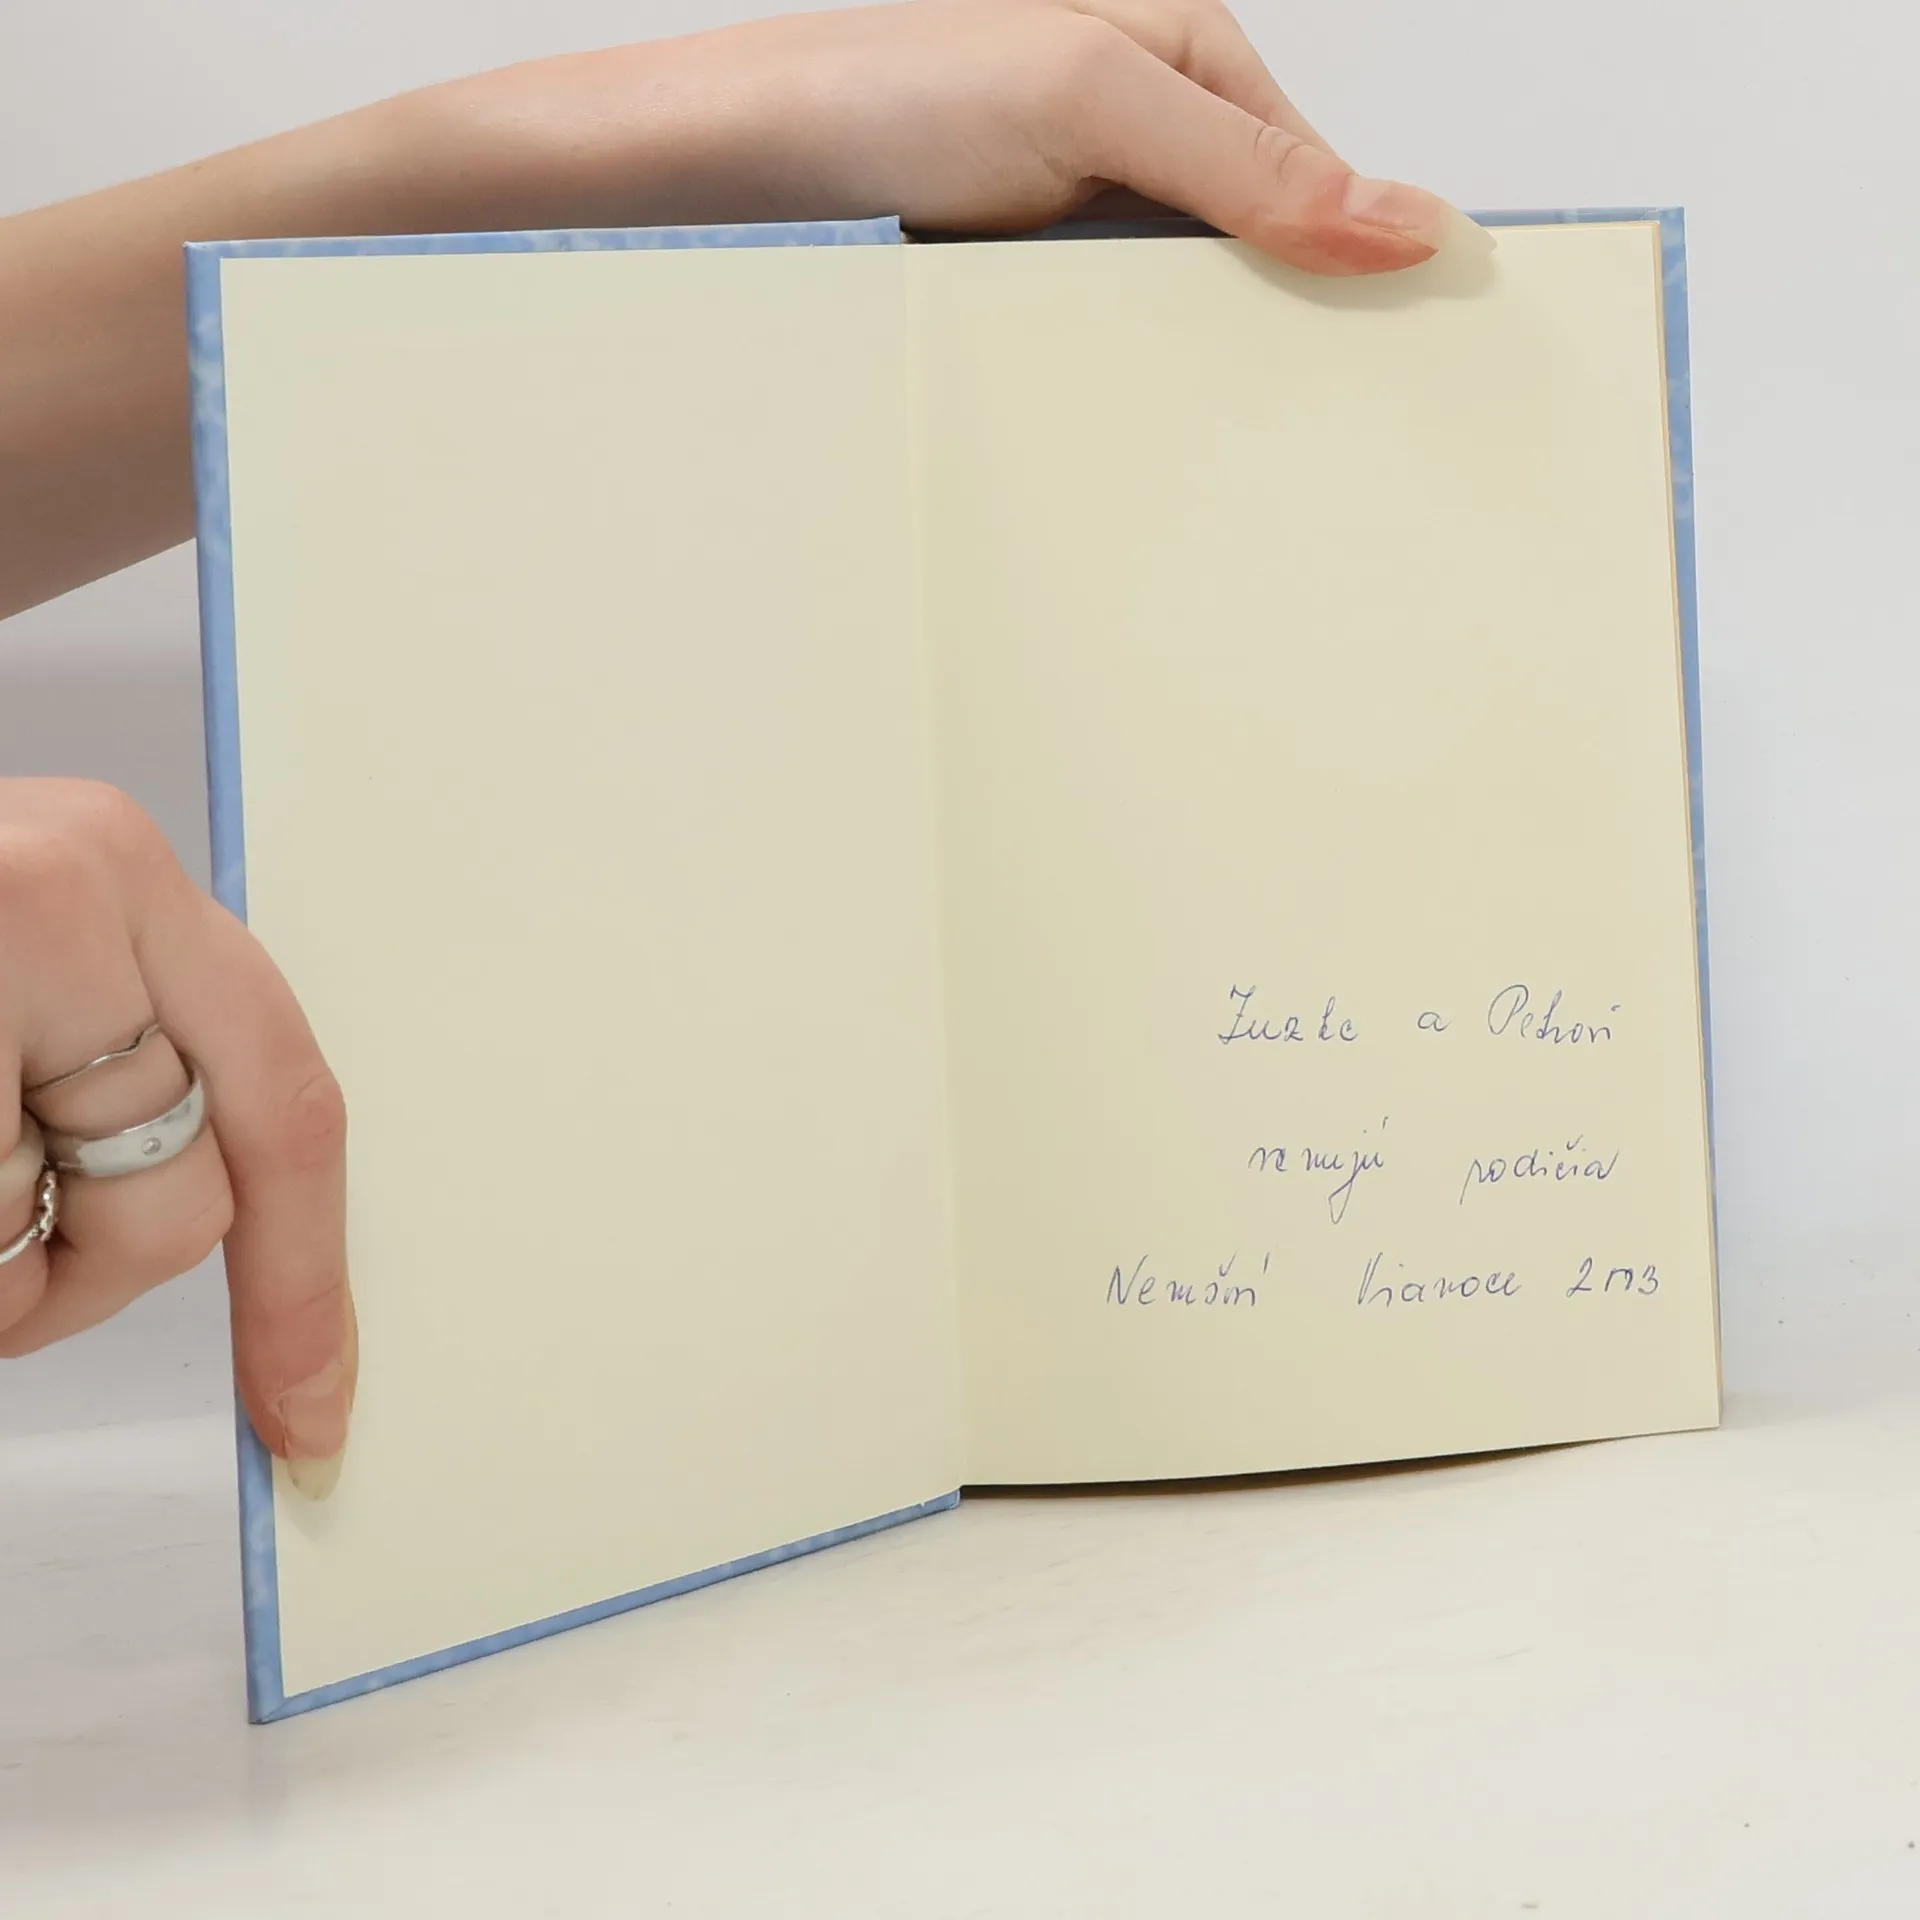 Zuzke a Petrovi
venujú rodičia
Nemšoví Vianoce 2003